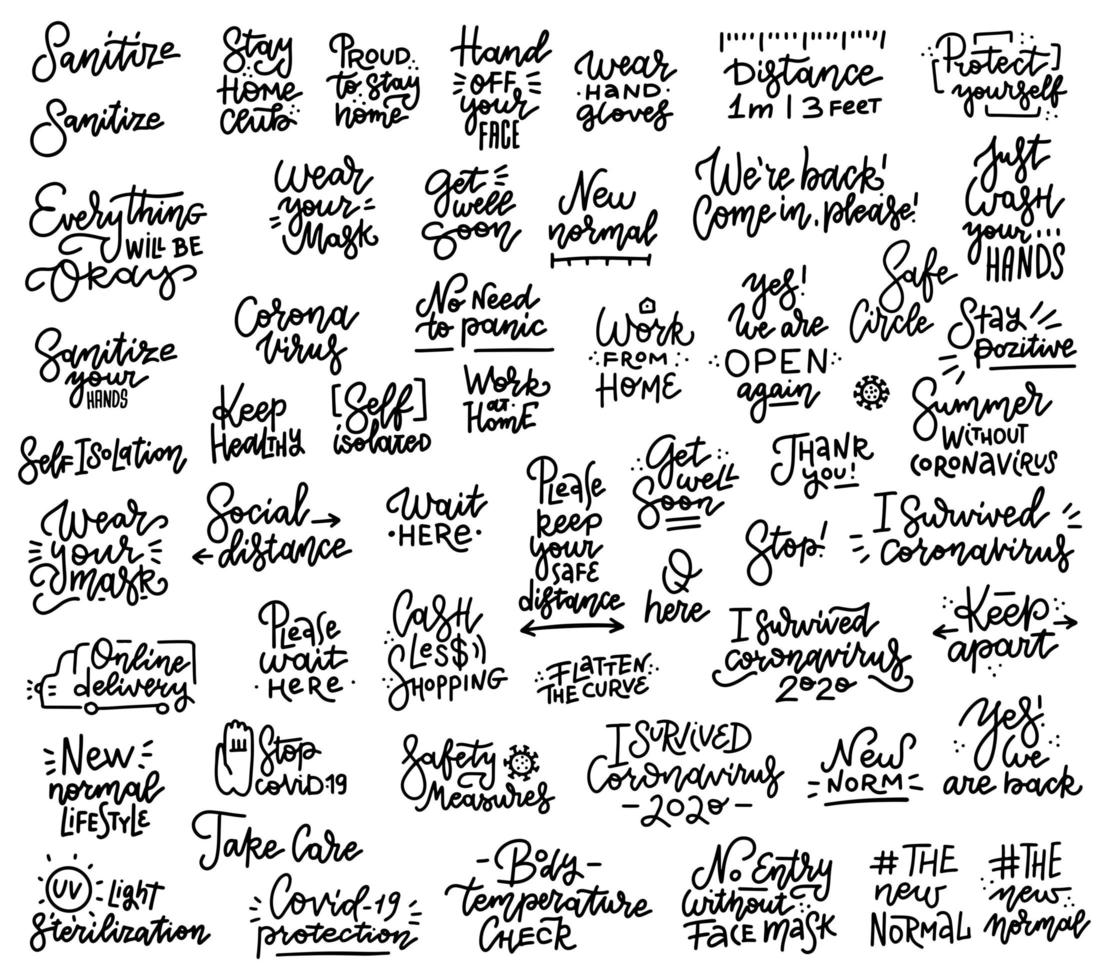 Sanitize
Sanitize
Stay
Home
Club
Proud
to stay
home
Hand
off
your
face
Wear
hand
gloves
Distance
1m | 3 feet
Protect
yourself
Everything
will be
Okay
Wear
your
Mask
Get
well
soon
New
normal
We're back!
Come in, please!
Just
Wash
your...
Hands
Safe
Circle
Sanitize
your
hands
Corona
virus
No need
to panic
Work
from
home
Yes!
We are
open
again
Stay
pozitive
Keep
Healthy
[Self]
isolated
Work
at
Home
Summer
without
coronavirus
Self Isolation
Get
well
Soon
Thank
you!
Wear
your
mask
Social
distance
Wait
here
Please
keep
your
safe
distance
Q
here
Stop!
I survived
coronavirus
Online
delivery
Please
wait
here
Cash
Les$
Shopping
Flatten
the curve
I survived
coronavirus
2020
Keep
apart
New
normal
lifestyle
Stop
covid-19
Safety
Measures
I survived
Coronavirus
-2020-
New
norm
Yes!
We
are back
Take Care
UV Light
sterilization
Covid-19
protection
-Body-
temperature
Check
No Entry
without
Face mask
#The
new
normal
#The
new
normal